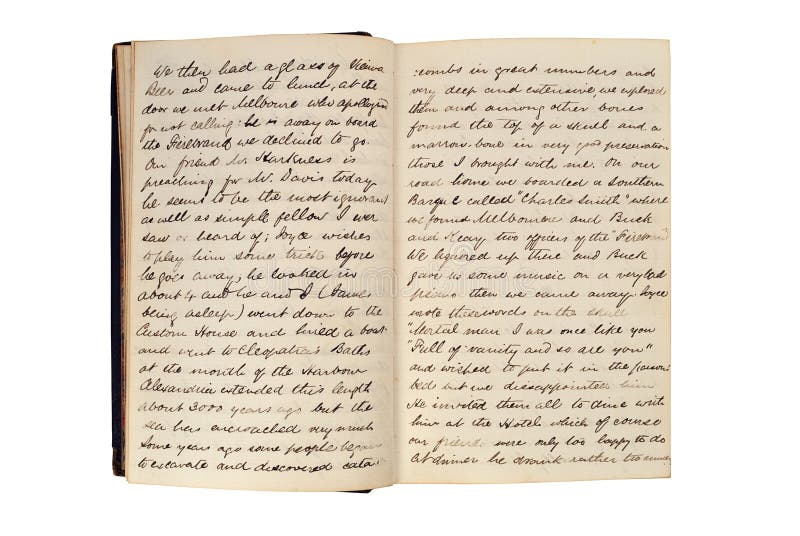 We then had a glass of Vienna
Beer and came to lunch, at the
door we met Melbourne who apologized
for not calling: he is away on board
the Firebrand we declined to go.
Our friend Mr. Harkness is
preaching for Mr. Davis today,
he seems to be the most ignorant
as well as simple fellow I ever
saw or heard of; Joyce wishes
to play him some trick before
he goes away, he looked in
about 4 and he and I (James
being asleep) went down to the
Custom House and hired a boat
and went to Cleopatra's Baths
at the mouth of the Harbour
Alexandria extended this length
about 3000 years ago but the
sea has encroached very much
Some years ago some people began
to excavate and discovered cata-
combs in great numbers and
very deep and extensive, we explored
them and among other bones
found the top of a skull and a
marrow bone in very good preservation
those I brought with me. On our
road home we boarded a Southern
Barque called "Charles Smith" where
we found Melbourne and Buck
and Keary two officers of the "Firebrand"
We liquored up there and Buck
gave us some music on a very bad
piano then we came away. Joyce
wrote these words on the skull
"Mortal man I was once like you
"Full of vanity and so are you"
and wished to put it in the parson's
bed but we disappointed him
He invited them all to dine with
him at the Hotel which of course
our friends were only too happy to do
At dinner he drank rather too much